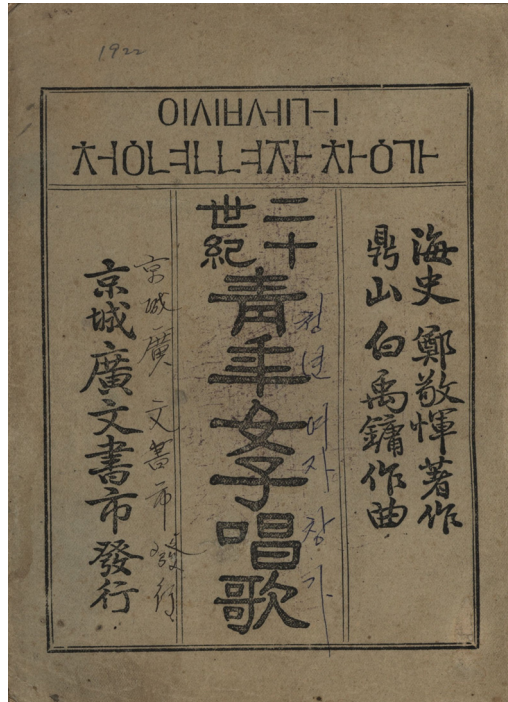 1922
ㅇㅣㅅㅣㅂㅅㅔㄱㅣ
ㅊㅓㅇㄴㅕㄴㄴㅕㅈㅏ ㅊㅏㅇㄱㅏ
海史 鄭敬惲 著作
鼎山 白禹鏞 作曲
二十
世紀
靑年女子唱歌
청년여자창가
京城廣文書市發行
京城廣文書市 發行